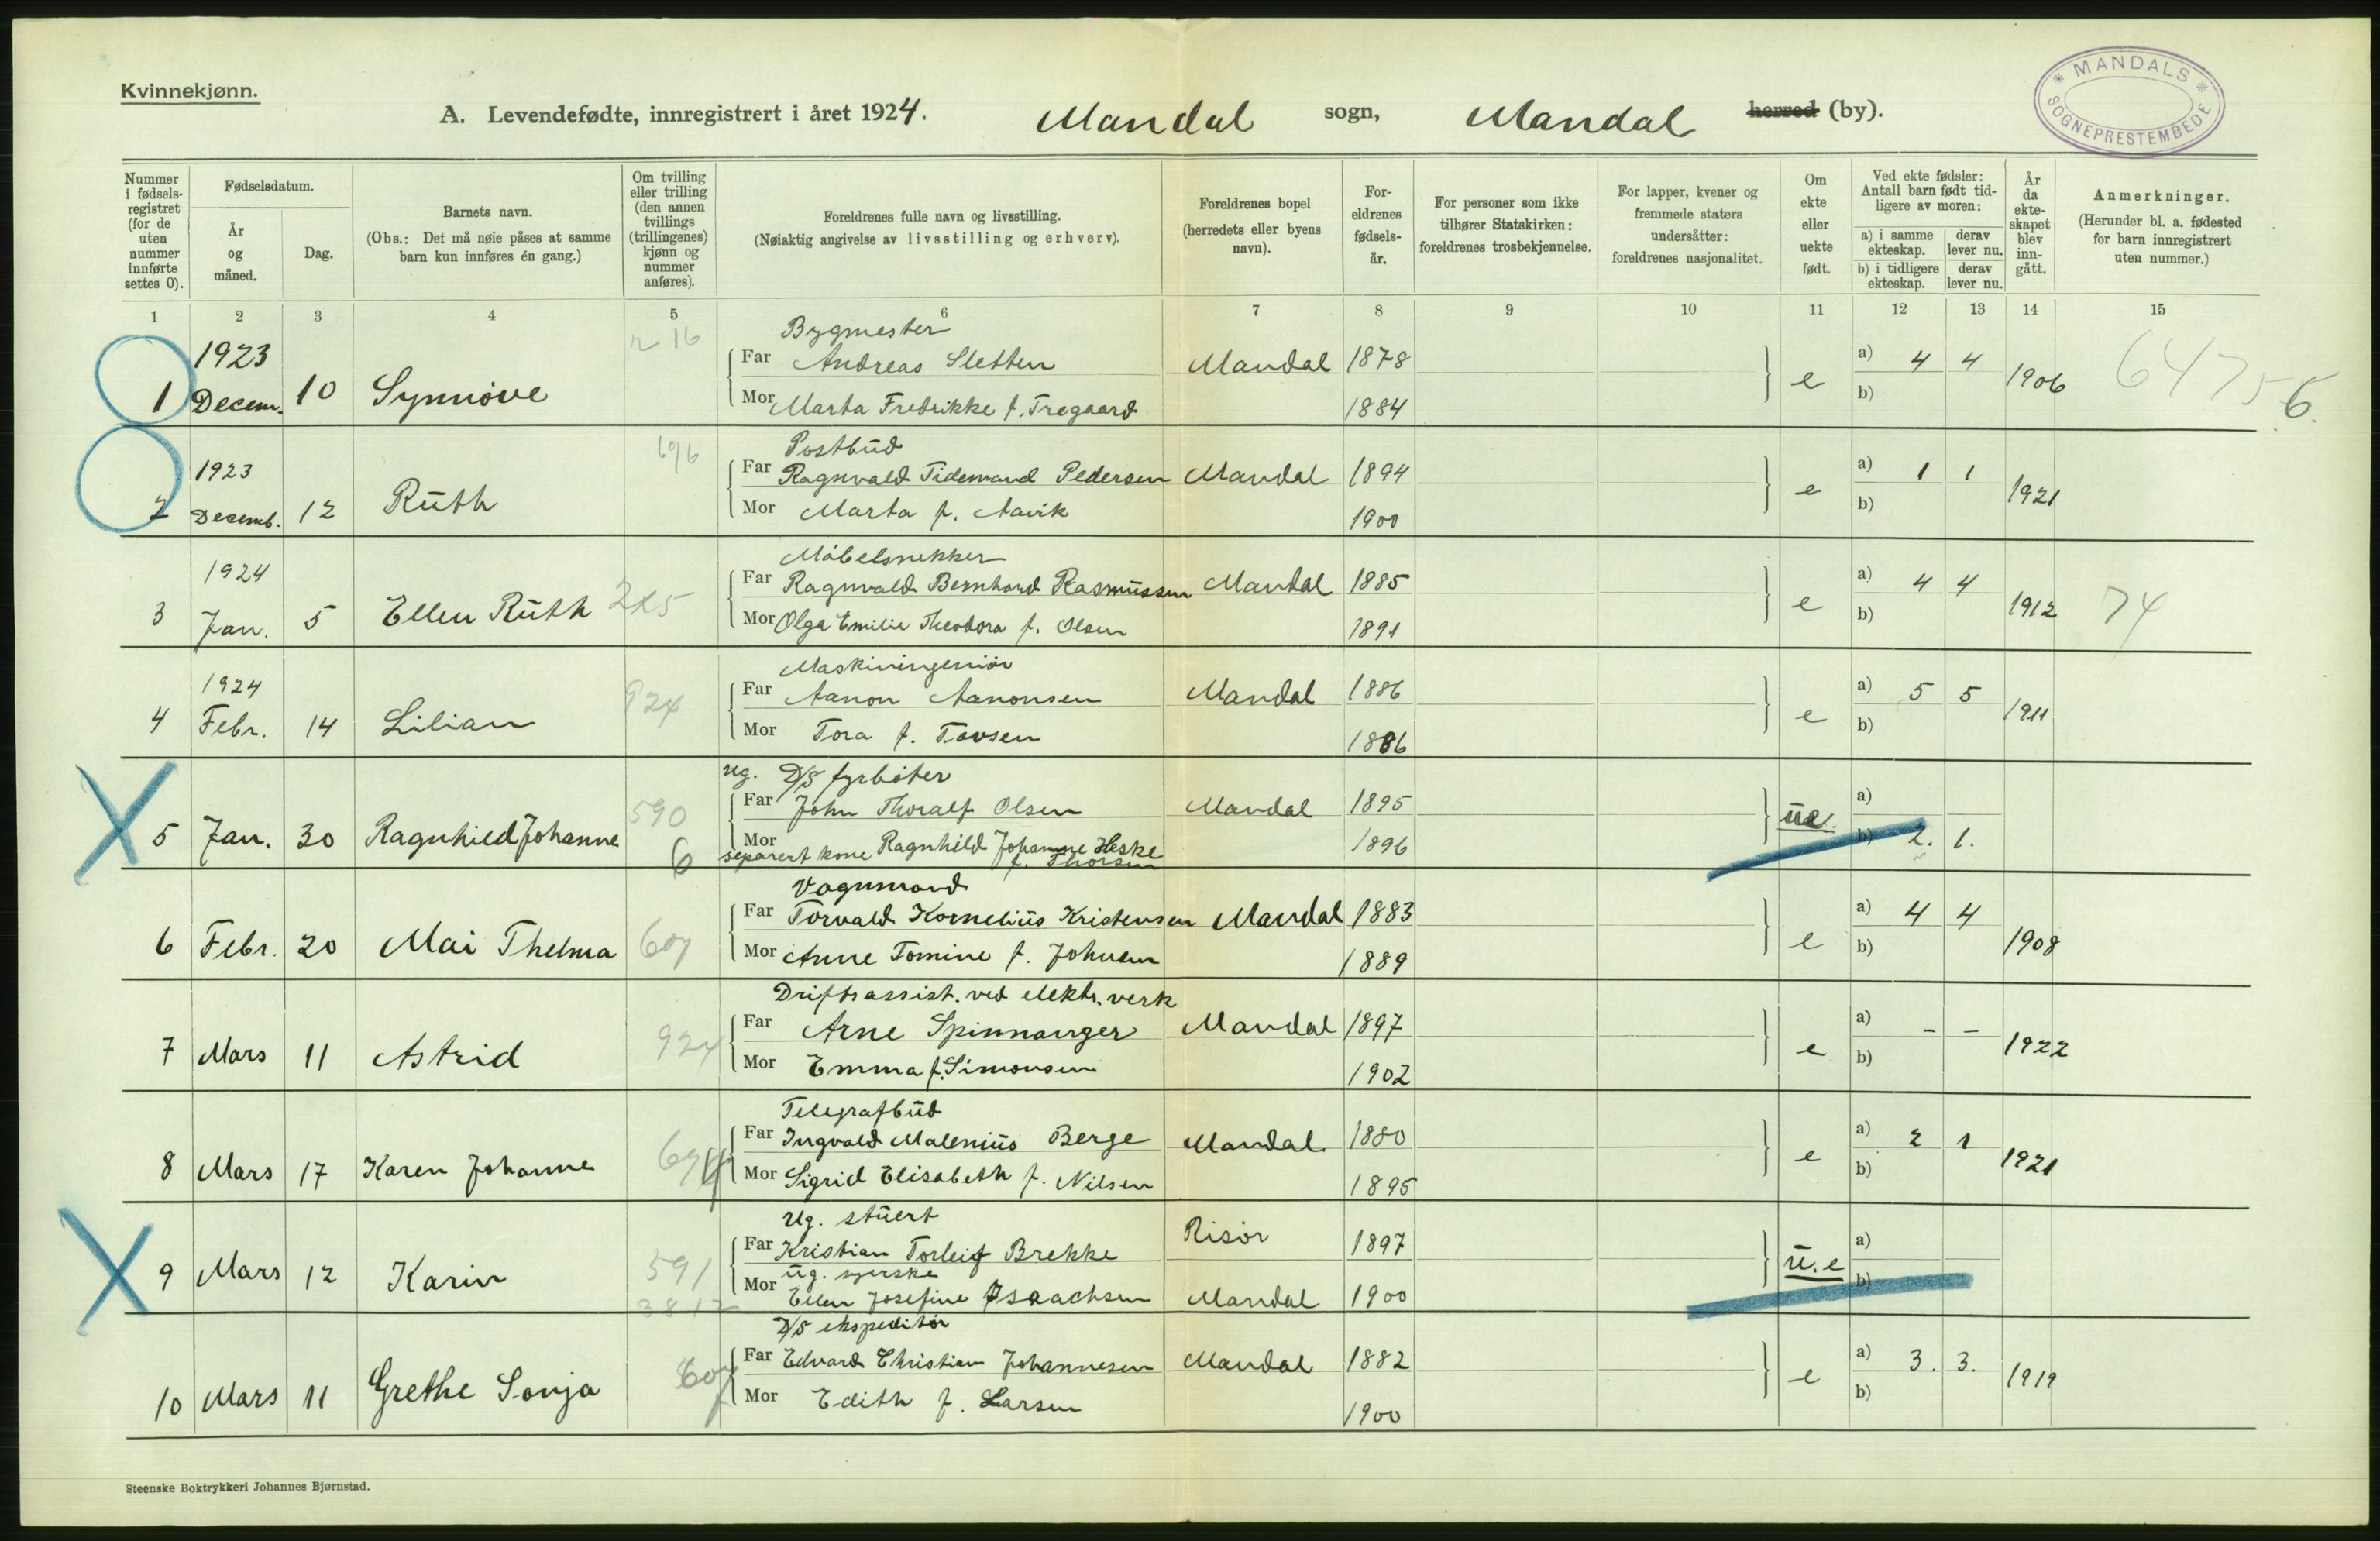 Kvinnekjønn.
A. Levendefødte, innregistrert i året 1924. Mandal sogn, Mandal herred (by).
* MANDALS * SOGNEPRESTEMBEDE
Nummer i fødsels-registret (for de uten nummer innførte settes 0).
Fødselsdatum.
År og måned.
Dag.
Barnets navn.
(Obs.: Det må nøie påses at samme barn kun innføres én gang.)
Om tvilling eller trilling (den annen tvillings (trillingenes) kjønn og nummer anføres).
Foreldrenes fulle navn og livsstilling.
(Nøiaktig angivelse av livsstilling og erhverv).
Foreldrenes bopel (herredets eller byens navn).
For-eldrenes fødsels-år.
For personer som ikke tilhører Statskirken: foreldrenes trosbekjennelse.
For lapper, kvener og fremmede staters undersåtter: foreldrenes nasjonalitet.
Om ekte eller uekte født.
Ved ekte fødsler: Antall barn født tid-ligere av moren:
a) i samme ekteskap. derav lever nu.
b) i tidligere ekteskap. derav lever nu.
År da ekte-skapet blev inn-gått.
Anmerkninger.
(Herunder bl. a. fødested for barn innregistrert uten nummer.)
1 2 3 4 5 6 7 8 9 10 11 12 13 14 15
Bygmester
1923 Far Andreas Sletten Mandal 1878 a) 4 4 6475 6.
1 Decem. 10 Synnöve Mor Marta Fredrikke f. Tregaard 1884 e b) 1906
196 Postbud
1923 Far Ragnvald Tidemand Pedersen Mandal 1894 a) 1 1
2 Decemb. 12 Ruth Mor Marta f. Aavik 1900 e b) 1921
Möbelsnekker
1924 Far Ragnvald Bernhard Rasmussen Mandal 1885 a) 4 4
3 Jan. 5 Ellen Ruth Mor Olga Emilie Theodora f. Olsen 1891 e b) 1912 74
Maskiningeniör
1924 Far Aanon Aanonsen Mandal 1886 a) 5 5
4 Febr. 14 Lilian 924 Mor Tora f. Tovsen 1886 e b) 1911
ug. D/S fyrböter
590 Far John Thoralf Olsen Mandal 1895 a)
5 Jan. 30 Ragnhild Johanne 6 Mor separert kone Ragnhild Johanne Heske 1896 ue. b) 2. 1.
f. Thorsen
Vognmand
Far Torvald Kornelius Kristensen Mandal 1883 a) 4 4
6 Febr. 20 Mai Thelma 607 Mor Anne Tomine f. Johnsen 1889 e b) 1908
Driftsassist. ved elektr. verk
Far Arne Spinnanger Mandal 1897 a) - -
7 Mars 11 Astrid 924 Mor Emma f. Simonsen 1902 e b) 1922
Telegrafbud
Far Ingvald Malenius Berge Mandal 1880 a) 2 1
8 Mars 17 Karen Johanne Mor Sigrid Elisabeth f. Nilsen 1895 e b) 1921
Ug. stuert
Far Kristian Torleif Brekke Risör 1897 a)
ug. syerske
9 Mars 12 Karin 591 Mor Ellen Josefine Isaachsen Mandal 1900 u.e b)
3812
D/S ekspeditör
Far Edvard Christian Johannesen Mandal 1882 a) 3. 3.
10 Mars 11 Grethe Sonja 607 Mor Edith f. Larsen 1900 e b) 1919
Steenske Boktrykkeri Johannes Bjørnstad.